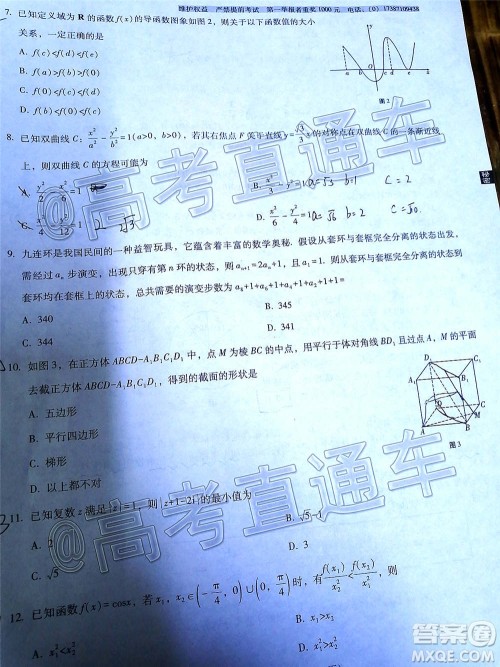 维护权益 严禁提前考试 第一举报者重奖1000元 电话、(0) 17387109438
7. 已知定义域为 R 的函数 f(x) 的导函数图象如图 2，则关于以下函数值的大小
关系，一定正确的是
A. f(c)<f(d)<f(a)
B. f(a)>f(b)>f(0)
C. f(b)<f(a)<f(c)
D. f(c)<f(d)<f(b)
图 2
8. 已知双曲线 C: x²/a² - y²/b² = 1(a>0, b>0)，若其右焦点 F 关于直线 y=√3/3 x 的对称点在双曲线 C 的一条渐近线
上，则双曲线 C 的方程可能为
B. x²/3 - y² = 1 a=√3 b=1 c=2
C. x²/4 - y²/12 = 1 2 √3
D. x²/6 - y²/4 = 1 a=√6 b=2 c=√10
9. 九连环是我国民间的一种益智玩具，它蕴含着丰富的数学奥秘. 假设从套环与套框完全分离的状态出发，
需经过 aₙ 步演变，出现只有第 n 环的状态，则 aₙ₊₁=2aₙ+1，且 a₁=1. 则从套环与套框完全分离的状态到
套环均在套框上的状态，总共需要的演变步数为 a₉+1+a₇+1+a₅+1+a₃+1+a₁+1=
A. 340
B. 345
C. 344
D. 341
10. 如图 3，在正方体 ABCD-A₁B₁C₁D₁ 中，点 M 为棱 BC 的中点，用平行于体对角线 BD₁ 且过点 A，M 的平面
去截正方体 ABCD-A₁B₁C₁D₁，得到的截面的形状是
A. 五边形
B. 平行四边形
C. 梯形
D. 以上都不对
图 3
11. 已知复数 z 满足|z|=1，则|z+1-2i|的最小值为
A. 2
B. √5-1
C. √5
D. 3
12. 已知函数 f(x)=cosx，若 x₁, x₂∈(-π/4, 0)∪(0, π/4) 时，有 f(x₁)/x₂² < f(x₂)/x₁²，则
A. x₁²<x₂²
B. x₁>x₂
高考直通车
高考直通车
高考直通车
秘密
答案圈
MXQE.COM